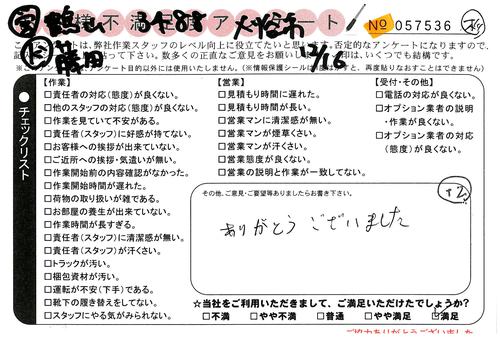 お客様不満足度アンケート No 057536
このアンケートは、弊社作業スタッフのレベル向上に役立てたいと思います。否定的なアンケートになりますので、
※このアンケート目的以外には使用いたしません。(※情報保護シールに
チェックリスト
【作業】
□責任者の対応(態度)が良くない。
□他のスタッフの対応(態度)が良くない。
□作業を見ていて不安がある。
□責任者(スタッフ)に好感が持てない。
□お客様への挨拶が出来ていない。
□ご近所への挨拶・気遣いが無い。
□作業開始前の内容確認がなかった。
□作業開始時間が遅れた。
□荷物の取り扱いが雑である。
□お部屋の養生が出来ていない。
□作業時間が長すぎる。
□責任者(スタッフ)に清潔感が無い。
□責任者(スタッフ)が汗くさい。
□トラックが汚い。
□梱包資材が汚い。
□運転が不安(下手)である。
□靴下の履き替えをしてない。
□スタッフにやる気がみられない。
【営業】
□見積もり時間に遅れた。
□見積もり時間が長い。
□営業マンに清潔感が無い。
□営業マンが煙草くさい。
□営業マンが汗くさい。
□営業態度が良くない。
□営業の説明と作業が一致してない。
【受付・その他】
□電話の対応が良くない。
□オプション業者の説明
・作業が良くない。
□オプション業者の対応
(態度)が良くない。
その他、ご意見・ご要望等ありましたらお書き下さい。
ありがとうございました
☆当社をご利用いただきまして、ご満足いただけたでしょうか?
□不満 □やや不満 □普通 □やや満足 □満足
ご協力ありがとうございました